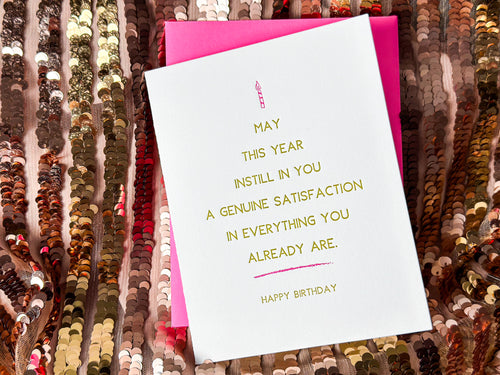 MAY
THIS YEAR
INSTILL IN YOU
A GENUINE SATISFACTION
IN EVERYTHING YOU
ALREADY ARE.
HAPPY BIRTHDAY